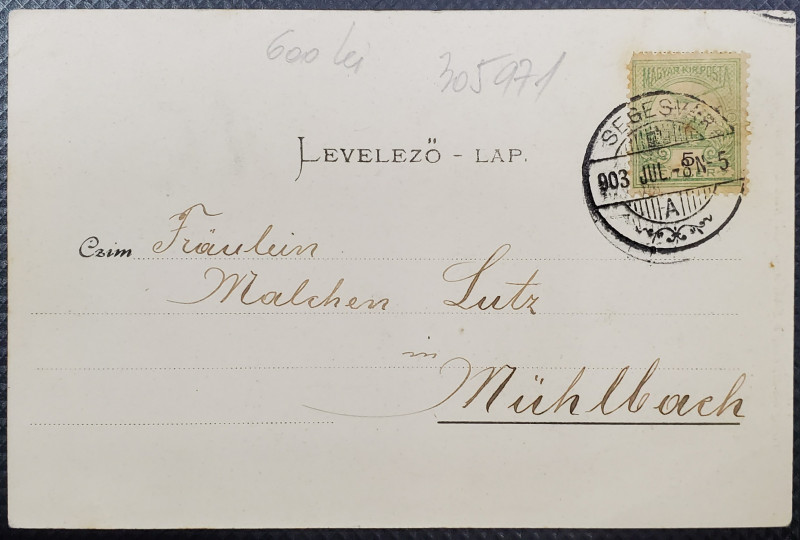 600 lei
305971
MAGYAR KIR. POSTA
SEGESVÁR
5
903 JUL. -8 N. 5
A
LEVELEZŐ - LAP.
Czim Fräulein
Malchen Lutz
in
Mühlbach